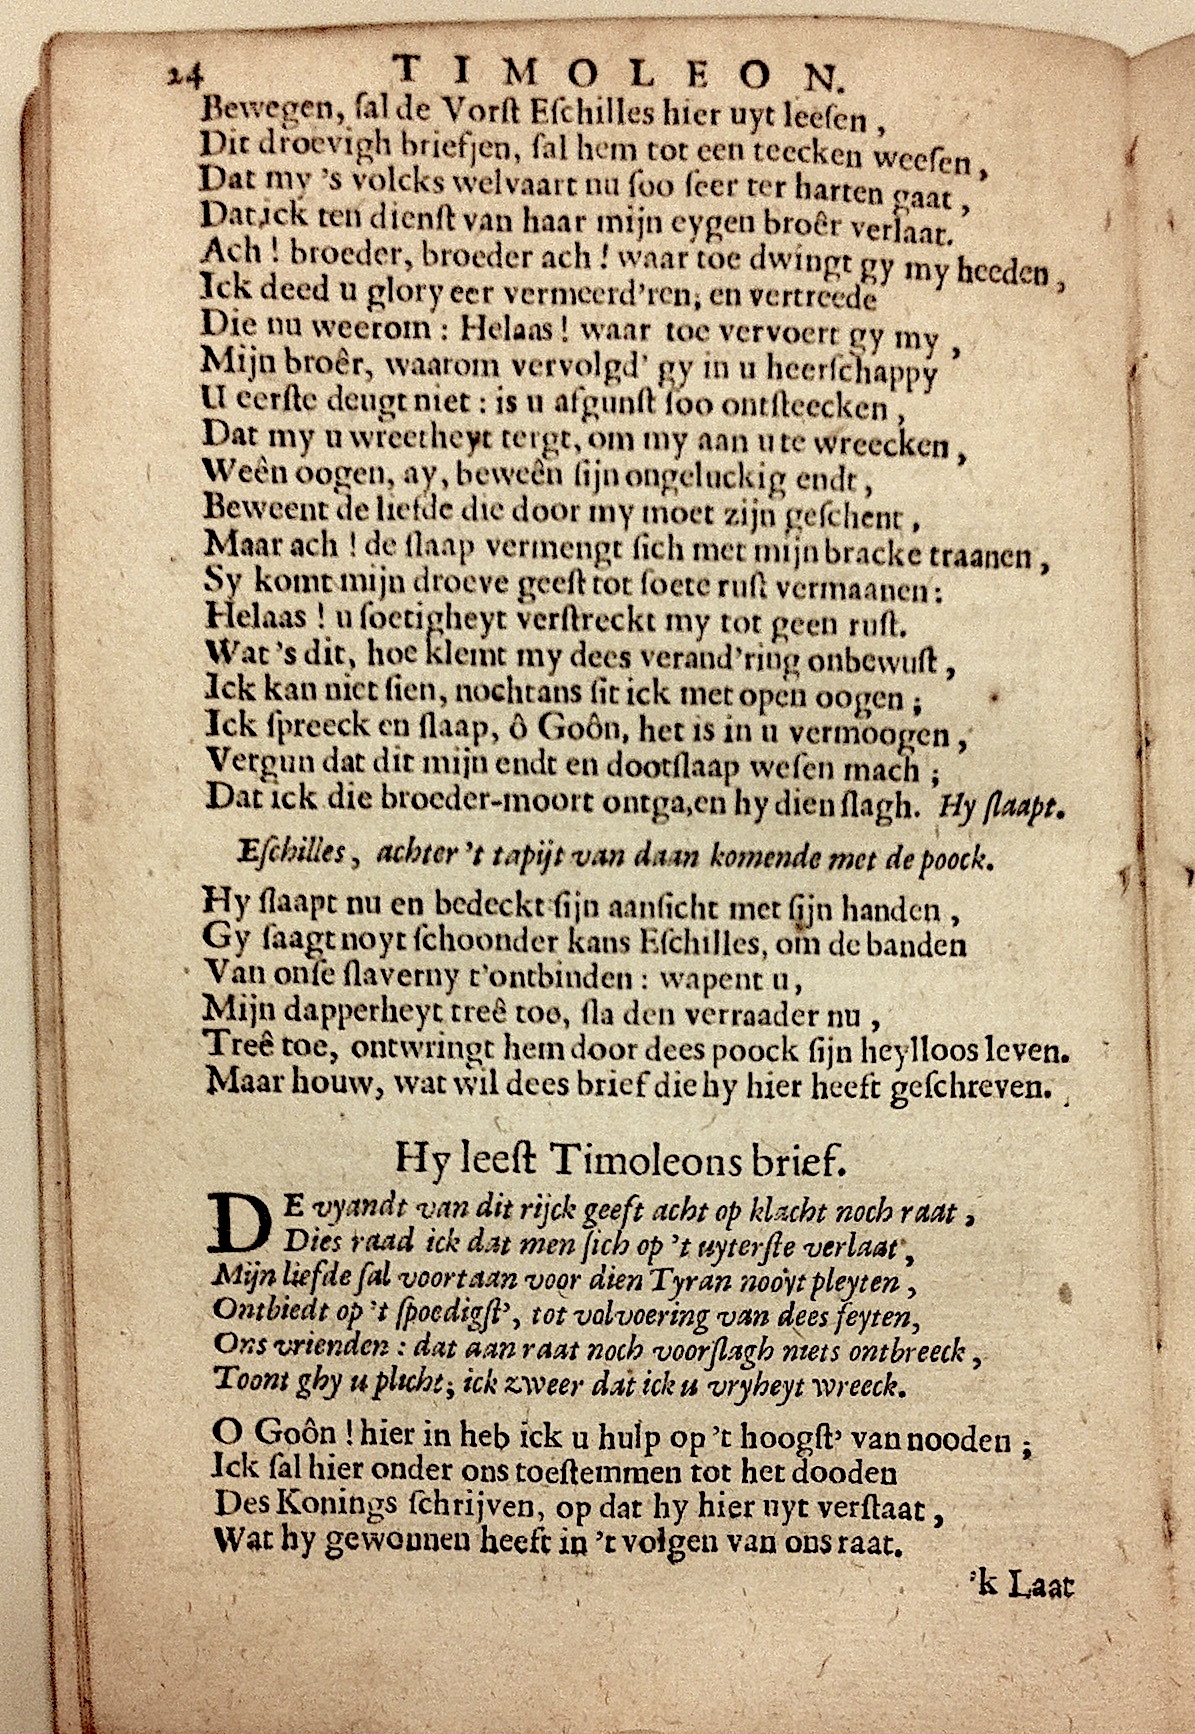 24 TIMOLEON.
Bewegen, ſal de Vorſt Eſchilles hier uyt leeſen,
Dit droevigh briefjen, ſal hem tot een teecken weeſen,
Dat my 's volcks welvaart nu ſoo ſeer ter harten gaat,
Dat ick ten dienſt van haar mijn eygen broêr verlaat.
Ach! broeder, broeder ach! waar toe dwingt gy my heeden,
Ick deed u glory eer vermeerd'ren, en vertreede
Die nu weerom: Helaas! waar toe vervoert gy my,
Mijn broêr, waarom vervolgd' gy in u heerſchappy
U eerſte deugt niet: is u afgunſt ſoo ontſteecken,
Dat my u wreetheyt tergt, om my aan u te wreecken,
Weên oogen, ay, beweên ſijn ongeluckig endt,
Beweent de liefde die door my moet zijn geſchent,
Maar ach! de ſlaap vermengt ſich met mijn bracke traanen,
Sy komt mijn droeve geeſt tot ſoete ruſt vermaanen:
Helaas! u ſoetigheyt verſtreckt my tot geen ruſt.
Wat 's dit, hoe klemt my dees verand'ring onbewuſt,
Ick kan niet ſien, nochtans ſit ick met open oogen;
Ick ſpreeck en ſlaap, ô Goôn, het is in u vermoogen,
Vergun dat dit mijn endt en dootſlaap weſen mach;
Dat ick die broeder-moort ontga, en hy dien ſlagh. Hy ſlaapt.
Eſchilles, achter 't tapijt van daan komende met de poock.
Hy ſlaapt nu en bedeckt ſijn aanſicht met ſijn handen,
Gy ſaagt noyt ſchoonder kans Eſchilles, om de banden
Van onſe ſlaverny t'ontbinden: wapent u,
Mijn dapperheyt treê toe, ſla den verraader nu,
Treê toe, ontwringt hem door dees poock ſijn heylloos leven.
Maar houw, wat wil dees brief die hy hier heeft geſchreven.
Hy leeſt Timoleons brief.
DE vyandt van dit rijck geeft acht op klacht noch raat,
Dies raad ick dat men ſich op 't uyterſte verlaat,
Mijn liefde ſal voortaan voor dien Tyran nooyt pleyten,
Ontbiedt op 't ſpoedigſt', tot volvoering van dees feyten,
Ons vrienden: dat aan raat noch voorſlagh niets ontbreeck,
Toont ghy u plicht; ick zweer dat ick u vryheyt wreeck.
O Goôn! hier in heb ick u hulp op 't hoogſt' van nooden;
Ick ſal hier onder ons toeſtemmen tot het dooden
Des Konings ſchrijven, op dat hy hier uyt verſtaat,
Wat hy gewonnen heeft in 't volgen van ons raat.
'k Laat